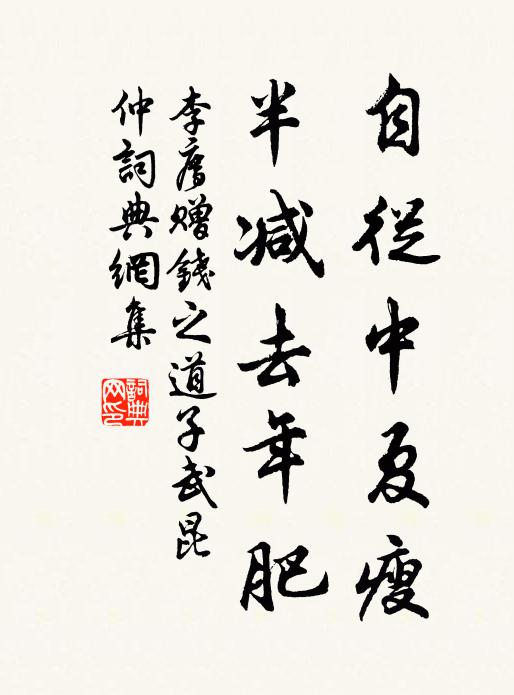 自從中夏瘦
半減去年肥
李廌贈錢之道子武昆
仲詞典網集
詞典
网印